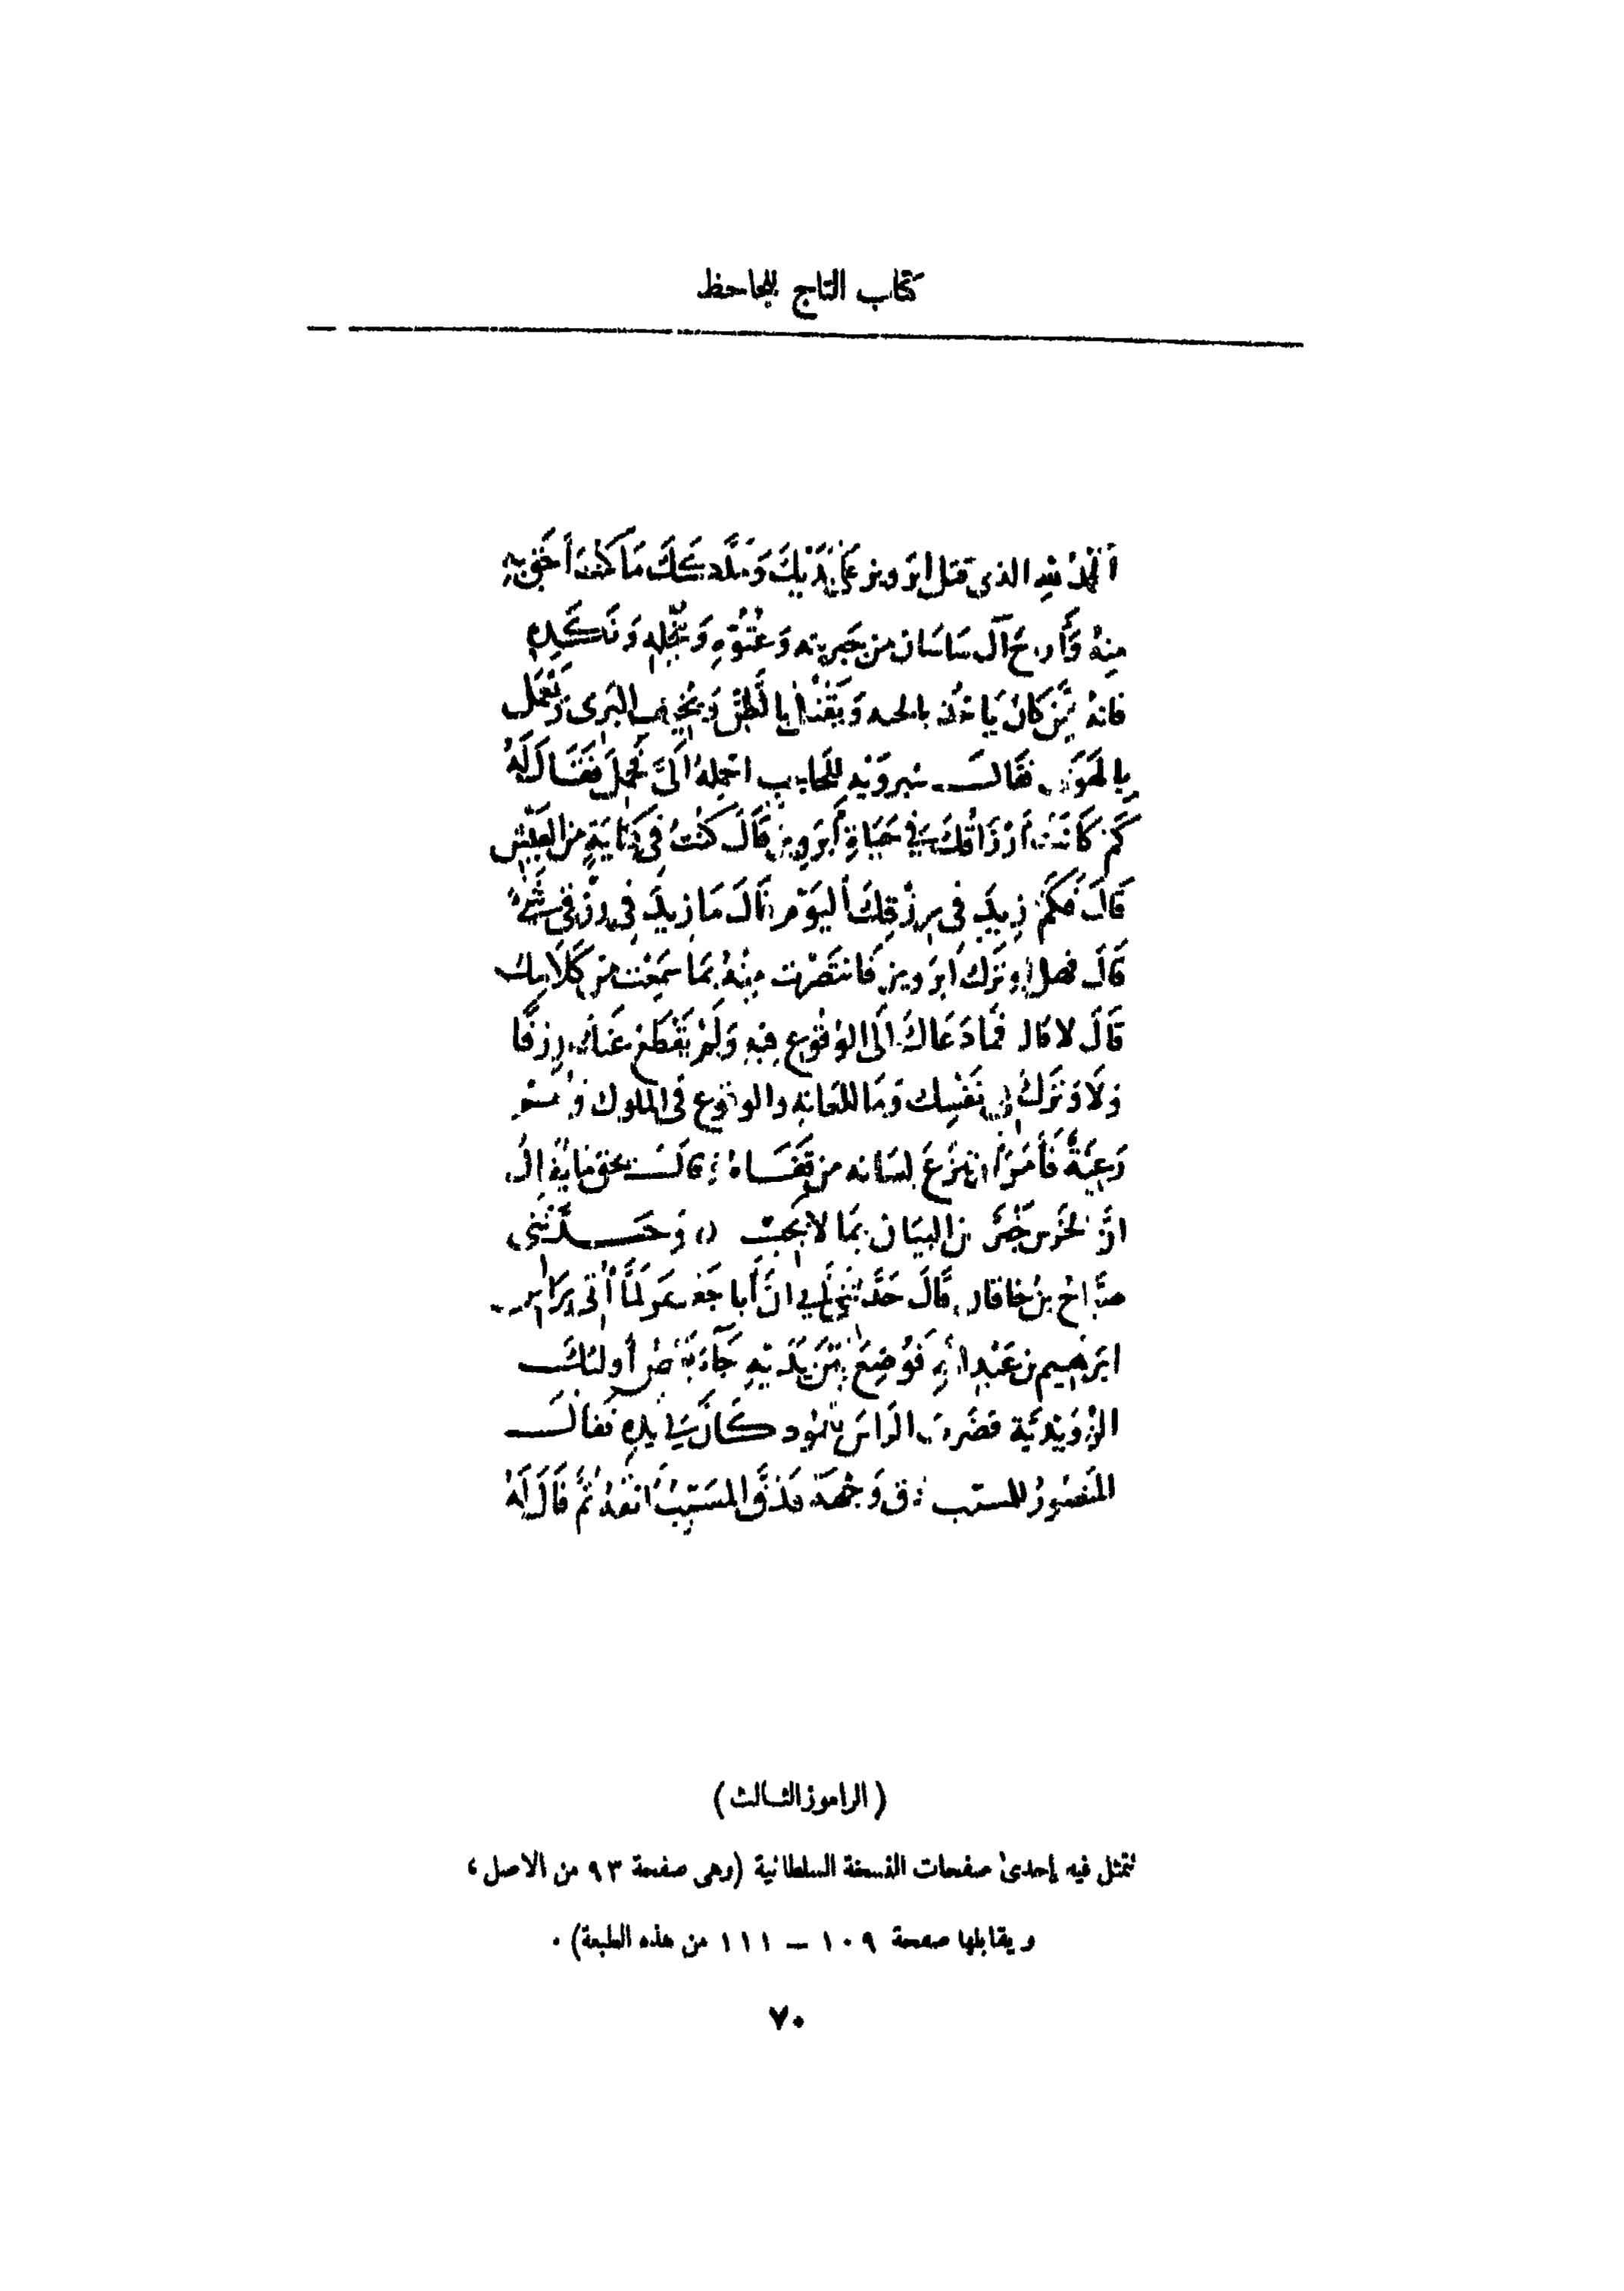 كتاب التاج للجاحظ
الحمد لله الذي قتل ابرويز على يَدَيْكَ وَمَلَّككَ مَا كنت أَحَقّ بِهِ
مِنهُ وَأَراحَ آلَ سَاسَان من جَبريته وَعُتُوِّهِ وَبُخْلِهِ وَنَكَدِهِ
فانهُ مِمَّن كانَ يَأخُذ بالحبه وَيَقتُل بالظَّن وَيُخِيف البَرِى وَيَعْمَل
بالهَوَى فقَالَ شيرويه للحَاجِب احمِلهُ الَىَّ فحُمِلَ فَقَالَ لَهُ
كَم كَانَت أَرْزَاقُكَ فِي حَيَاةِ أَبرَويز قَالَ كنتُ فِي كِفَايَةٍ من العَيْشِ
قَالَ فكَم زِيدَ فِي رِزْقِكَ اليَوْم قَالَ مَا زِيدَ فِي رِزْقِي شَيْءٌ
قَالَ فهل وَتَرَك ابرَويز فَانتَصَرْت مِنهُ بمَا سَمِعْت مِن كَلَامِك
قَالَ لا قال فَمَا دَعَاكَ الَى الوُقُوعِ فِيهِ وَلَمْ يَقْطَعْ عَنكَ رِزقًا
وَلَا وَتَرَكَ فِي نَفْسِك وَمَا للعَامّهِ والوقوع فى الملوك وهُم
رَعِيَّةٌ فَأَمَرَ ان يُنزَعَ لِسَانه من قَفَاهُ وقالَ بحق مَا يُقالُ
انَّ الخَرَس خَيْرٌ من البَيَان بمَا لا يَجِبُ وَحَدَّثَنِى
صَبَّاحُ بنُ خَاقان قَالَ حَدَّثَنِى أَبِي انَّ أَبا جَعْفَر لَمَّا أُتِىَ بِرَاسِ
ابرَهِيم بن عَبْدِ الله فَوُضِعَ بَيْنَ يَدَيْهِ جَآءَ بَعْضُ أُولئكَ
الرَّوَنْدِيَّة فضَرَبَ الرَاسَ بِعَمُود كَانَ فِي يَدِهِ فَقَالَ
المَنصُورُ للمسيّب دُق وَجْهَهُ فدَقَّ المُسَيّبُ انفَهُ ثُمَّ قَالَ لَهُ
(الراموز الثالث)
نتمثل فيه إحدى صفحات النسخة السلطانية (وهى صفحة ٩٣ من الأصل ،
ويقابلها صفحة ١٠٩ – ١١١ من هذه الطبعة) .
٧٠